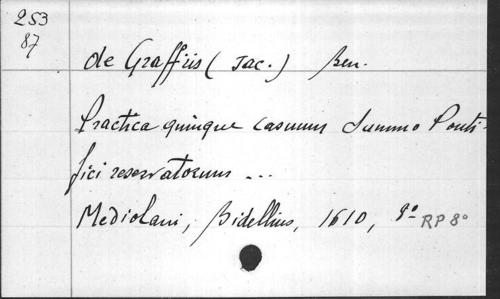 253
87
de Graffiis (Jac.) Ben.
Practica quinque casuum Summo Ponti-
fici reservatorum ...
Mediolani, Bidellius, 1610, 8º RP 8º